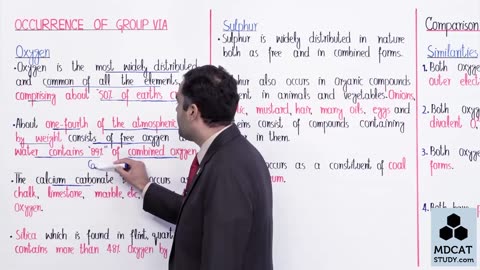 OCCURRENCE OF GROUP VIA
Oxygen
• Oxygen is the most widely distributed
and common of all the elements,
comprising about '50% of earths
• About one-fourth of the atmospheric
by weight consists of free oxygen
water contains "89%" of combined oxygen.
• The calcium carbonate occurs as
chalk, limestone, marble, etc,
Oxygen.
• Silica which is found in flint, quart
contains more than 48% Oxygen by
Sulphur
• Sulphur is widely distributed in nature
both as free and in combined forms.
Sulphur also occurs in Organic compounds
ent in animals and vegetables. Onions,
ic, mustard, hair, many oils, eggs and
eins consist of compounds containing
in them.
occurs as a constituent of coal
um.
Comparison
Similarities
1. Both oxyge
outer elect
2. Both Oxyge
divalent O.
3. Both oxyge
forms.
4. Both have
MDCAT
STUDY.com